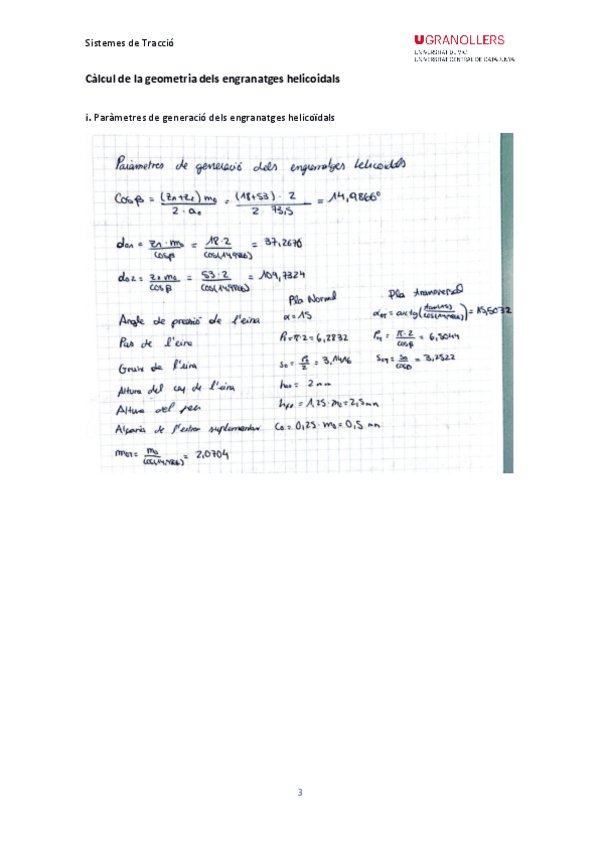 Sistemes de Tracció
UGRANOLLERS
UNIVERSITAT DE VIC
UNIVERSITAT CENTRAL DE CATALUNYA
Càlcul de la geometria dels engranatges helicoidals
i. Paràmetres de generació dels engranatges helicoïdals
Paràmetres de generació dels engranatges helicoidals
Cosβ = (Z1+Z2) m0 / 2·a0 = (18+53)·2 / 2·73,5 = 14,9866°
d01 = Z1·m0 / cosβ = 18·2 / cos(14,986) = 37,2676
d02 = Z2·m0 / cosβ = 53·2 / cos(14,986) = 109,7324
Pla Normal Pla transversal
Angle de pressió de l'eina α=15 = 15,5032
Pas de l'eina = π·2 = 6,2832 = π·2 / cosβ = 6,5044
Gruix de l'eina = 3,1416 = 3,2522
Altura del cap de l'eina = 2 mm
Altura del peu = 1,25·m0 = 2,5 mm
de l' suplementari C0 = 0,25·m0 = 0,5 mm
= m0 / cos(14,986) = 2,0704
3